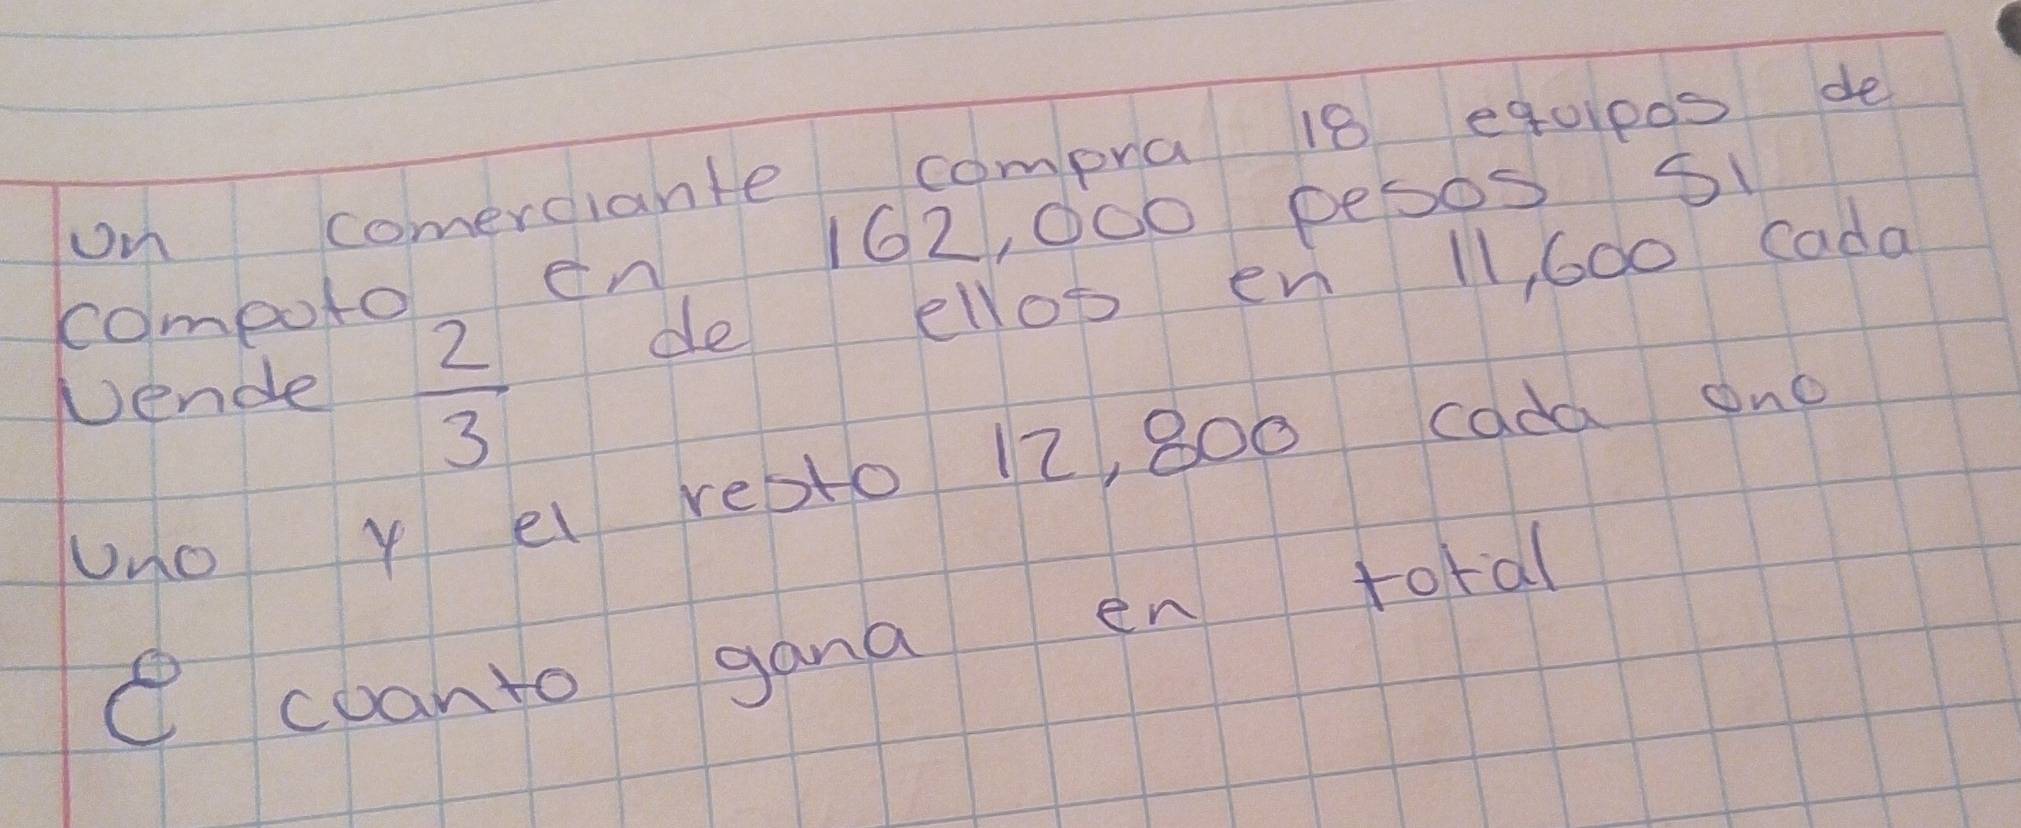 Un comerciante compra 18 equipos de
computo en 162,000 pesos si
vende 2/3 de ellos en 11,600 cada
uno y el resto 12,800 cada uno
¿ cuanto gana en total